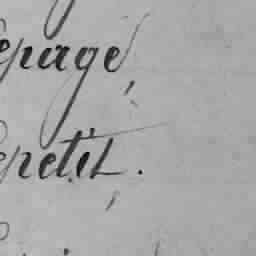 epage,
epetit.